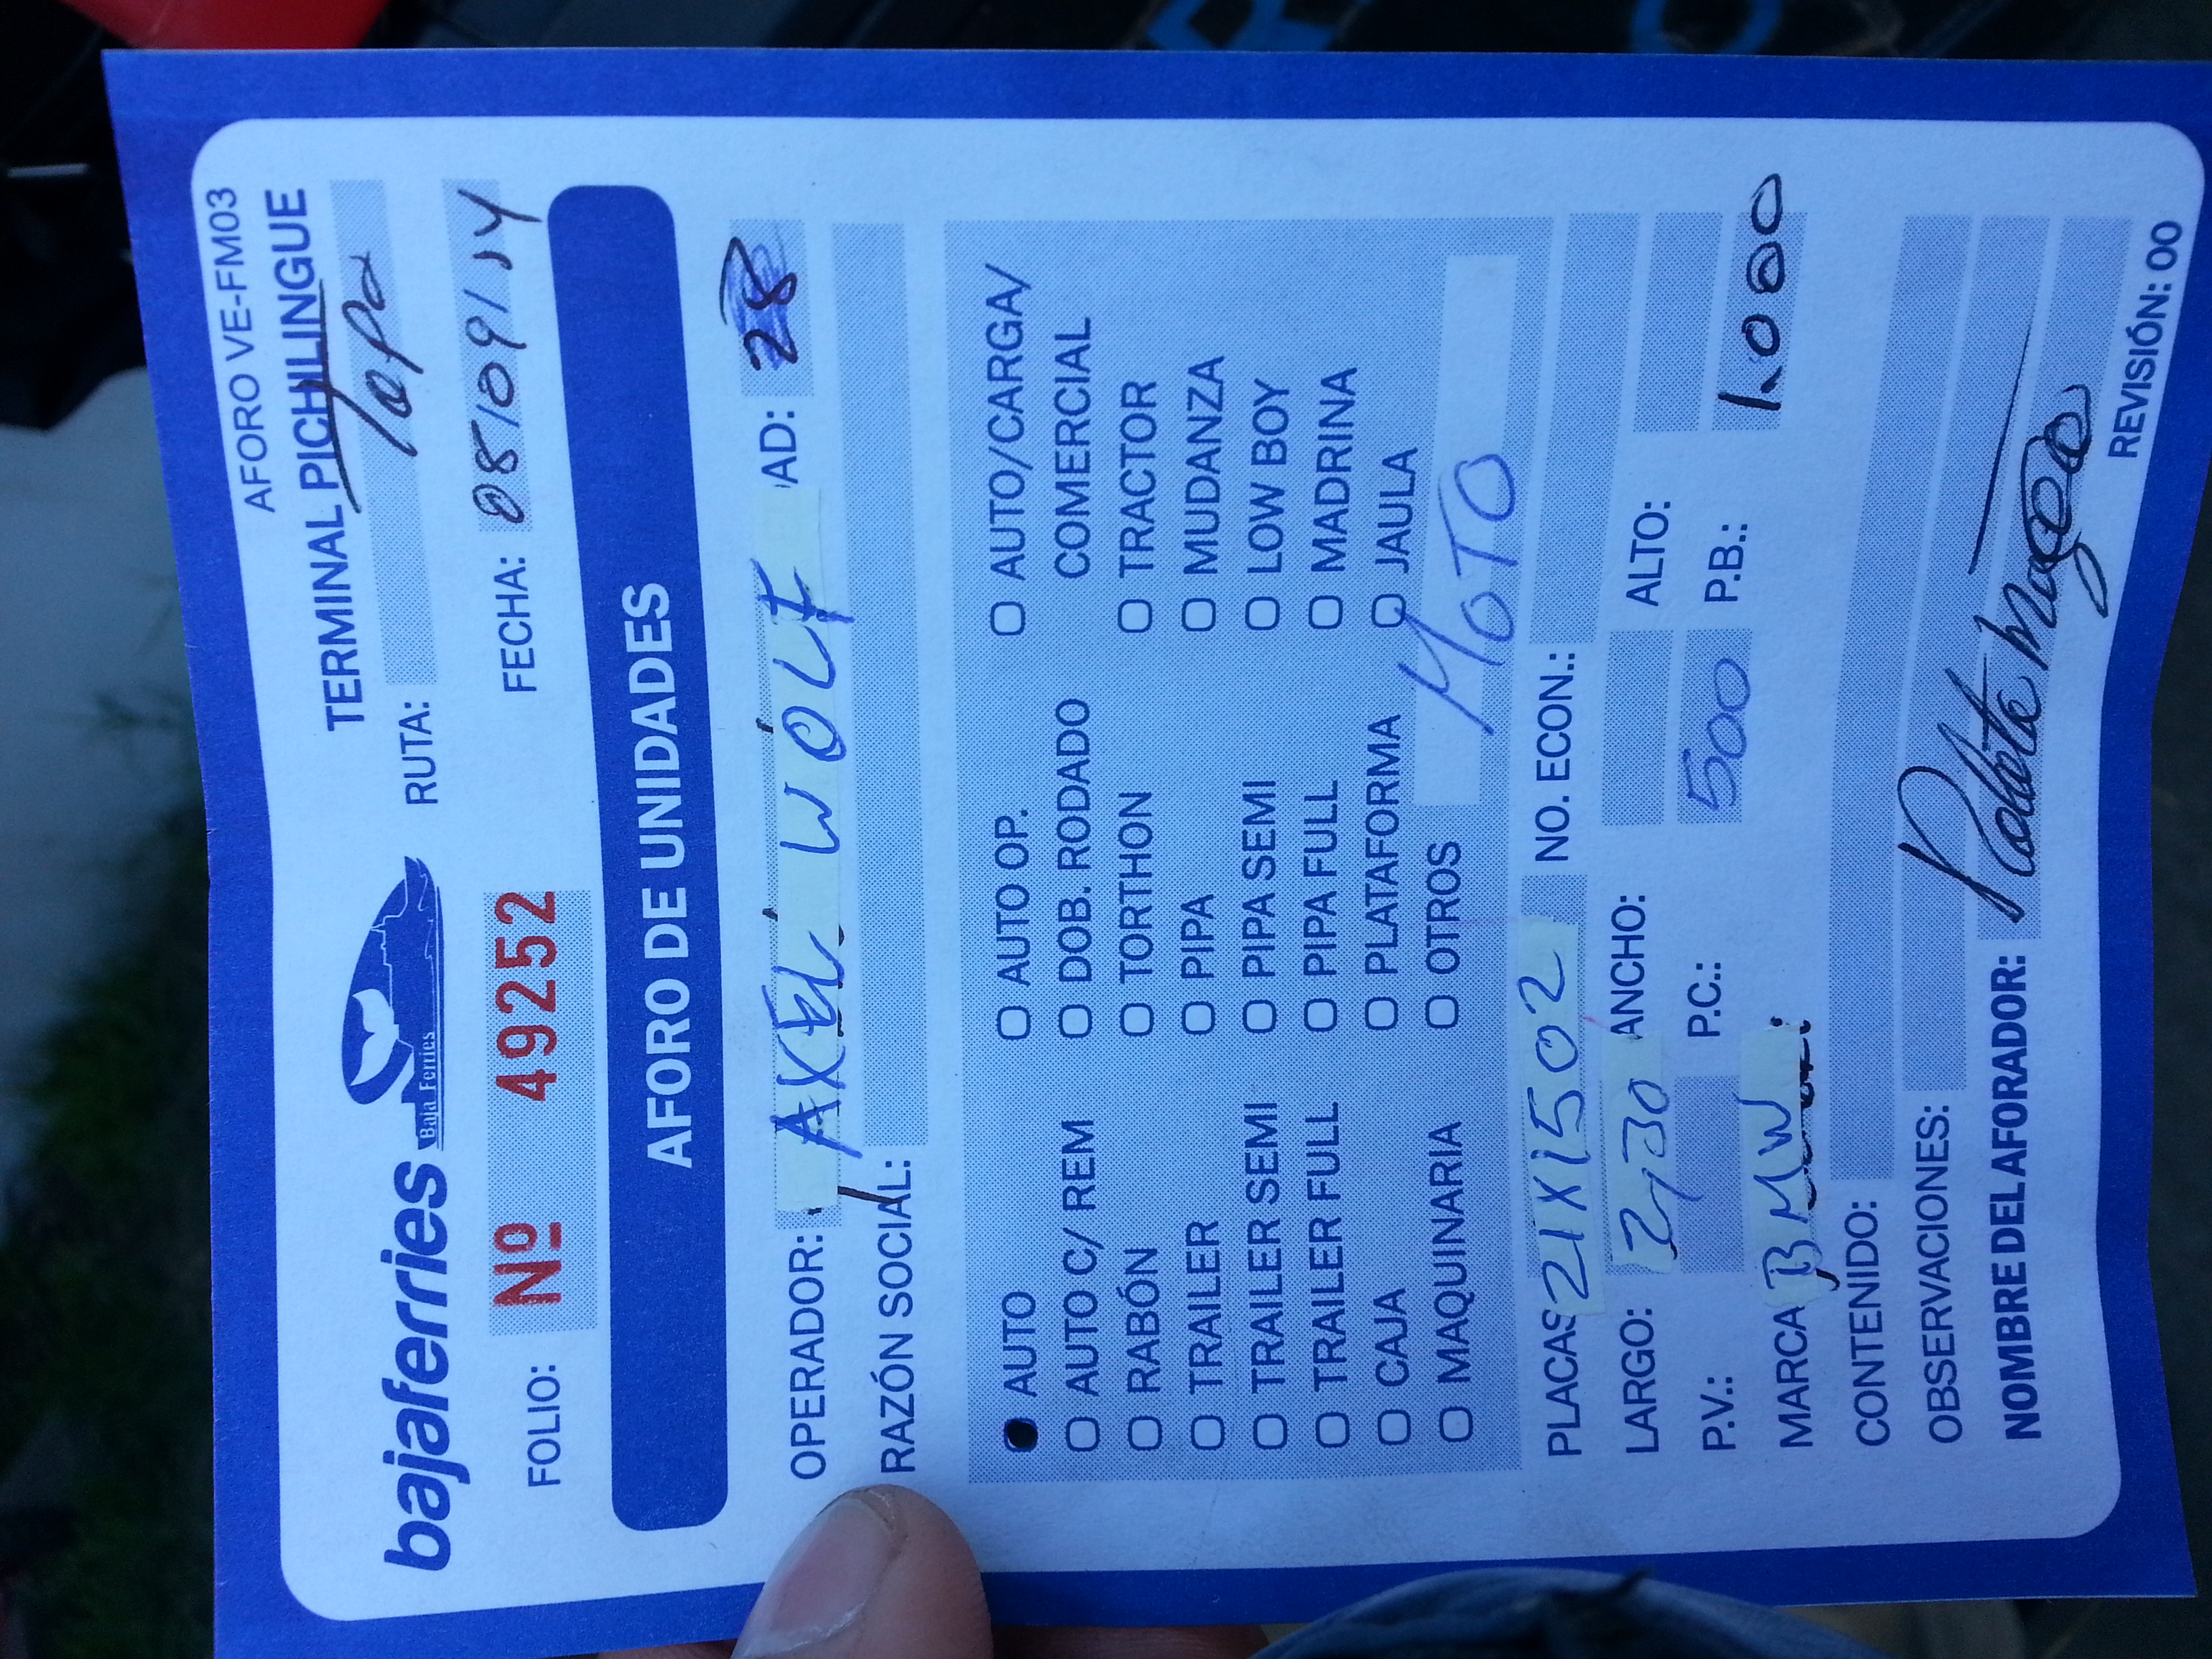 AFORO VE-FM03
bajaferries Baja Ferries TERMINAL PICHILINGUE
RUTA: Tapa
FOLIO: Nº 49252 FECHA: 08/09/14
AFORO DE UNIDADES
OPERADOR: AXEL WOLF AD: 28
RAZÓN SOCIAL:
AUTO AUTO OP. AUTO/CARGA/
AUTO C/ REM DOB. RODADO COMERCIAL
RABÓN TORTHON TRACTOR
TRAILER PIPA MUDANZA
TRAILER SEMI PIPA SEMI LOW BOY
TRAILER FULL PIPA FULL MADRINA
CAJA PLATAFORMA JAULA
MAQUINARIA OTROS MOTO
PLACAS 21X1502 NO. ECON.:
LARGO: 2,30 ANCHO: ALTO:
P.V.: P.C.: 500 P.B.: 1.000
MARCA BMW
CONTENIDO:
OBSERVACIONES:
NOMBRE DEL AFORADOR:
REVISIÓN: 00